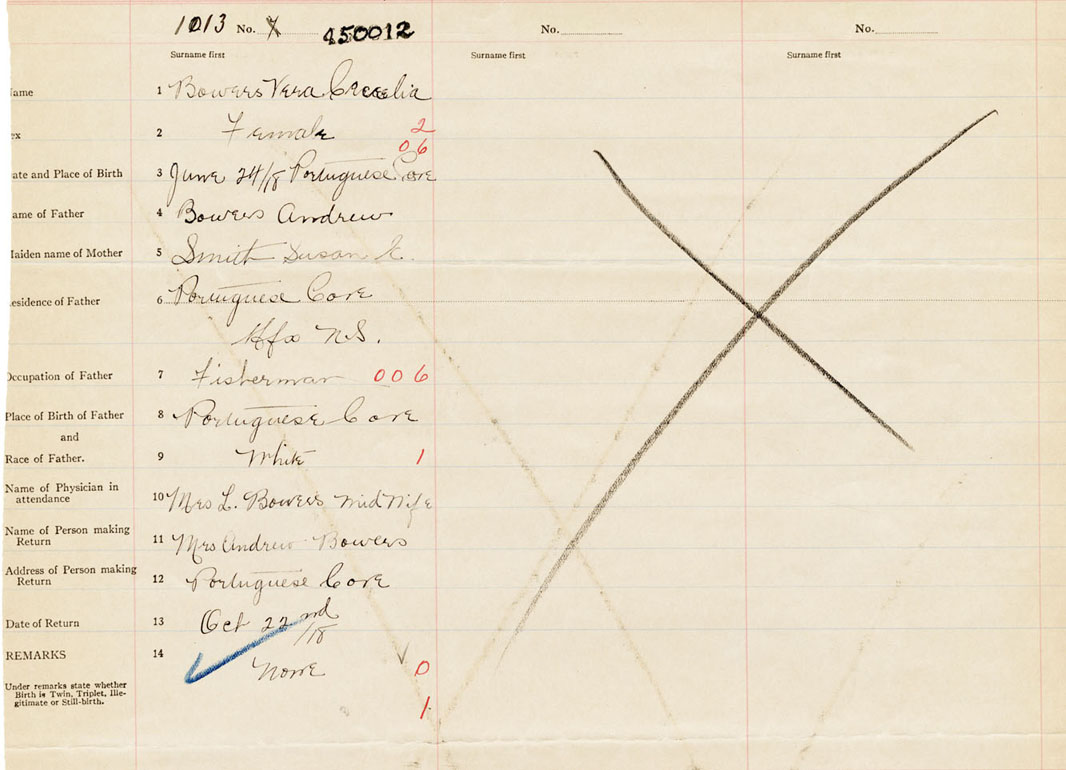 1013 No. X 450012 No. No.
Surname first Surname first Surname first
ame 1 Bowers Vera Cecelia
ex 2 Female 2
06
ate and Place of Birth 3 June 24/18 Portuguese Cove
ame of Father 4 Bowers Andrew
aiden name of Mother 5 Smith Susan E.
esidence of Father 6 Portuguese Cove
Hfx N.S.
Occupation of Father 7 Fisherman 006
Place of Birth of Father 8 Portuguese Cove
and
Race of Father. 9 White 1
Name of Physician in
attendance 10 Mrs L. Bowers MidWife
Name of Person making
Return 11 Mrs Andrew Bowers
Address of Person making
Return 12 Portuguese Cove
Date of Return 13 Oct 22nd
/18
REMARKS 14
None 0
Under remarks state whether
Birth is Twin, Triplet, Ille-
gitimate or Still-birth.
1